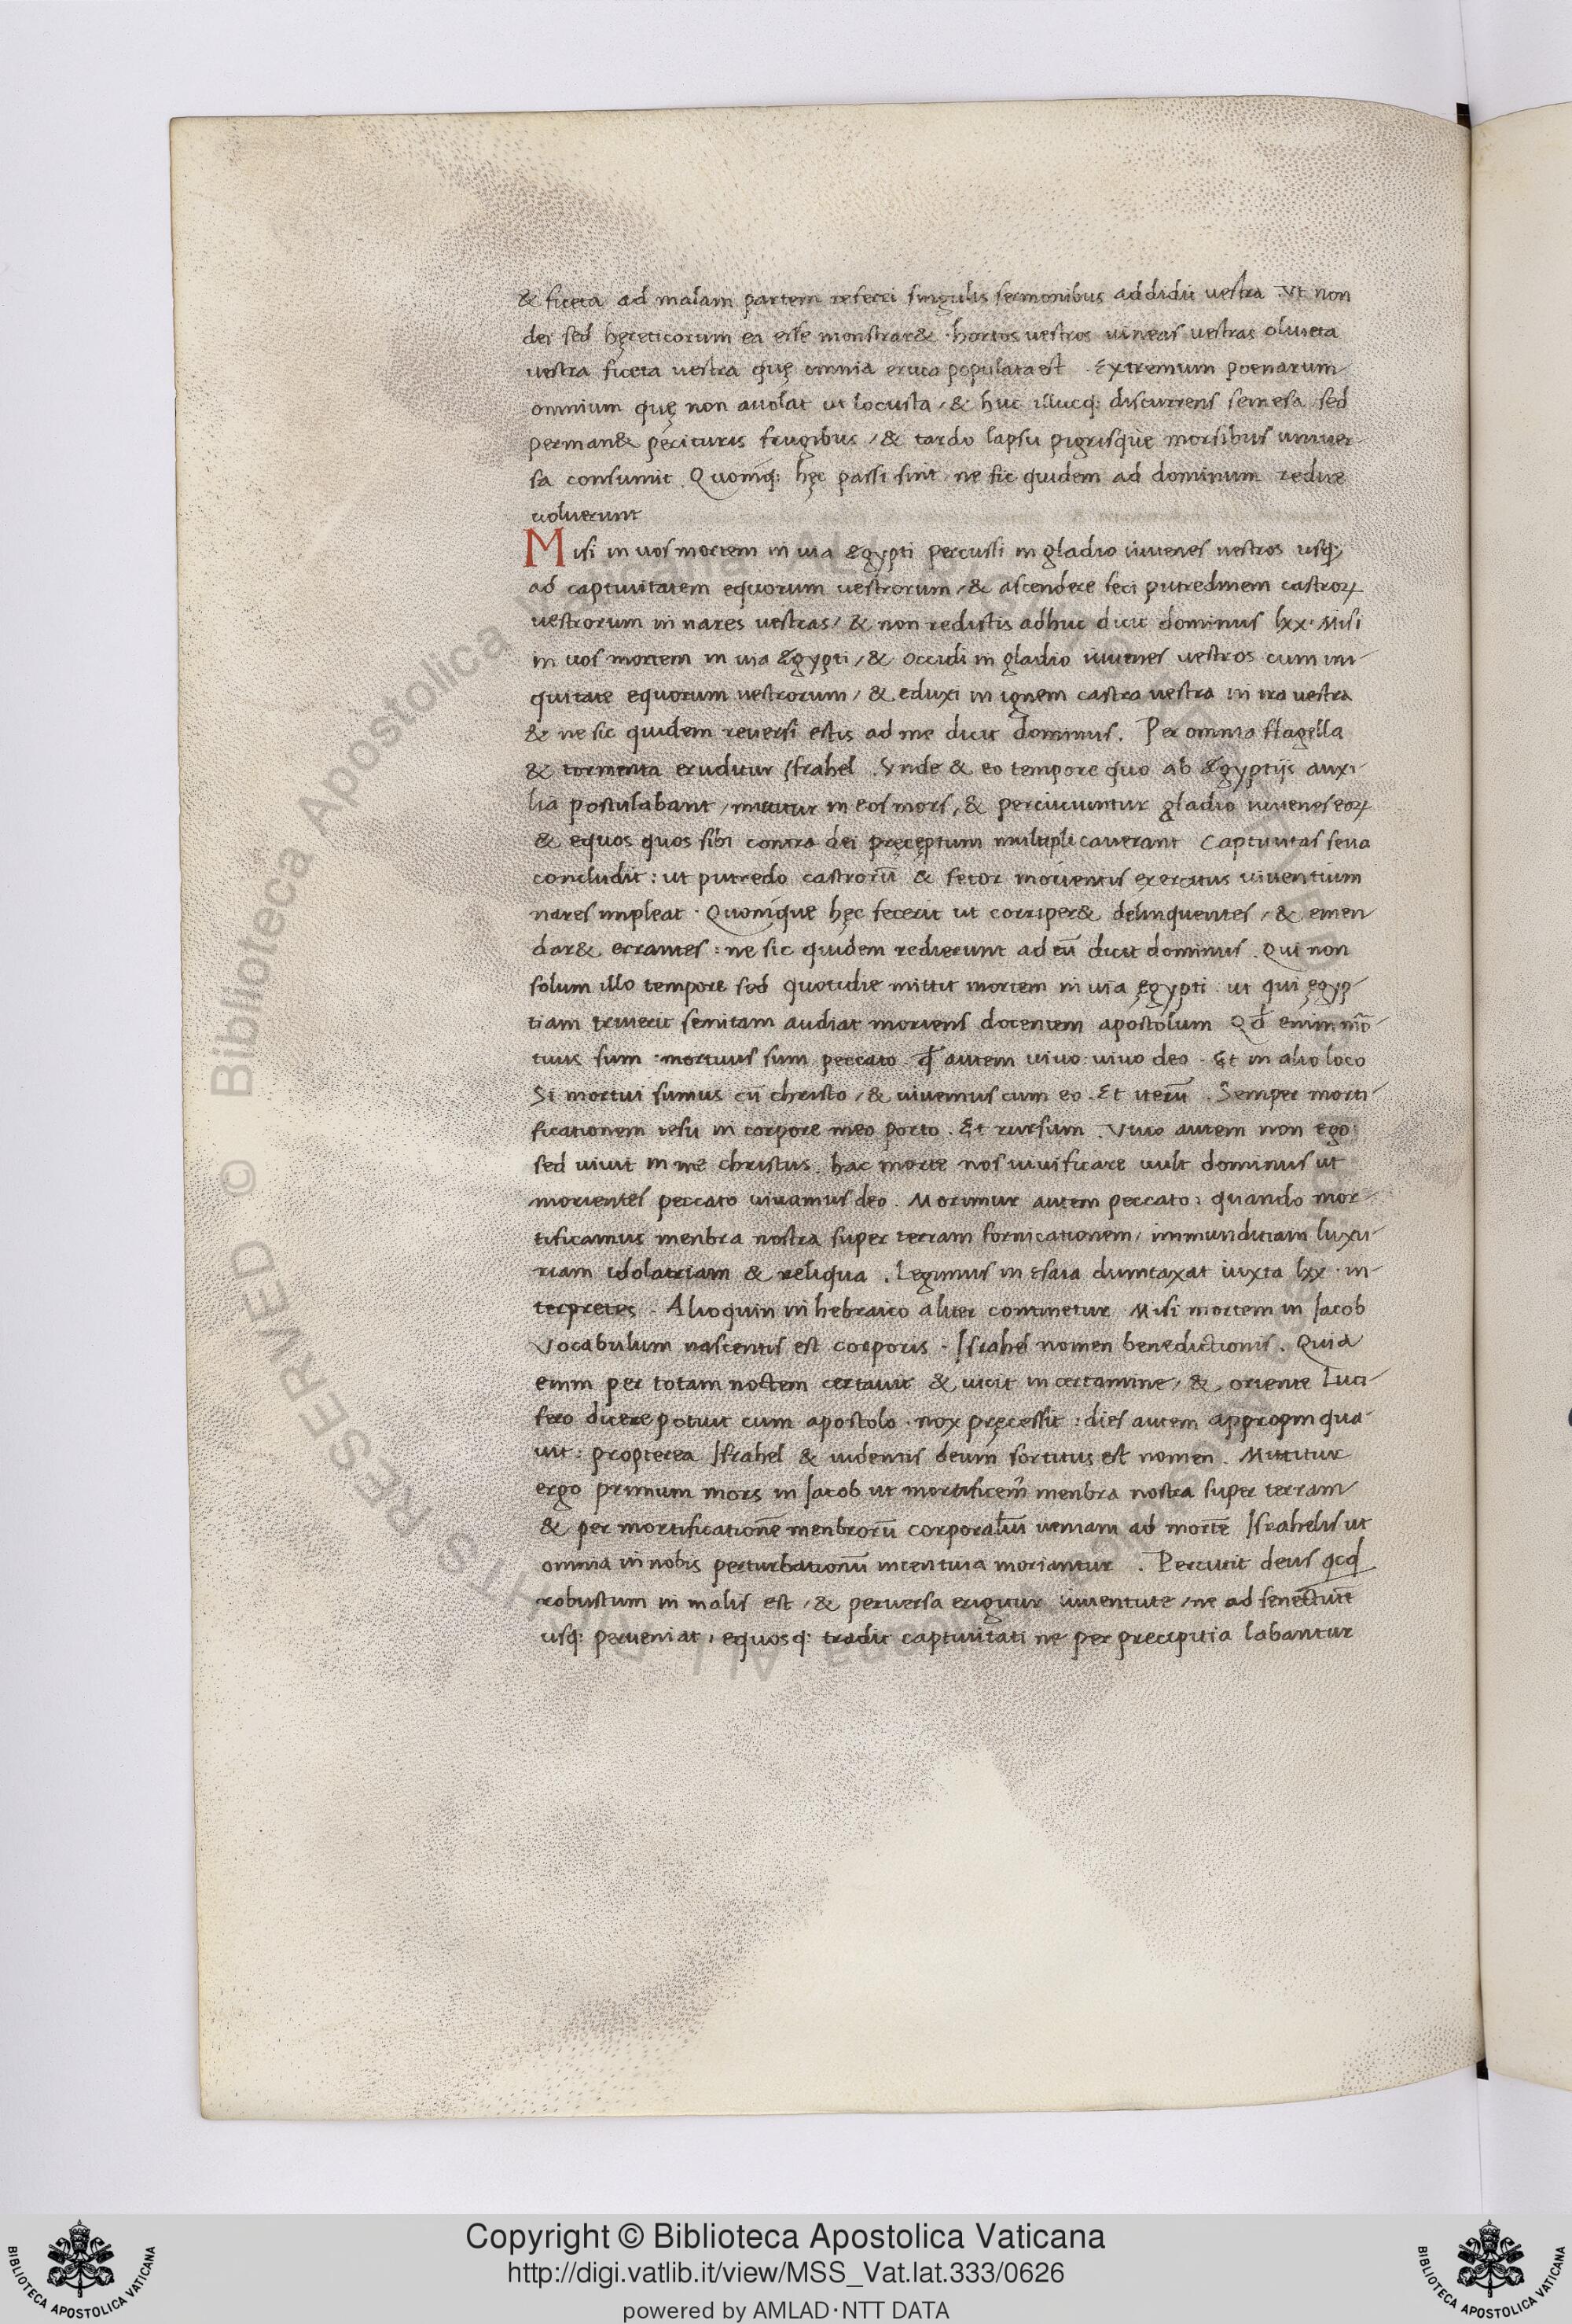 & ficeta ad malam partem referri singulis sermonibus addidit vestra. Vt non
dei sed hęreticorum ea esse monstrar& · hortos vestros vineas vestras oliueta
vestra ficeta vestra quę omnia eruca populata est. Extremum poenarum
omnium quę non auolat ut locusta / & huc illucq; discurrens semesa sed
perman& perituris frugibus / & tardo lapsu pigrisque morsibus uniuer-
sa consumit. Quomq; hęc passi sint ne sic quidem ad dominum redire
uoluerunt
Misi in uos mortem in uia Egypti percussi in gladio iuuenes uestros usq;
ad captiuitatem equorum uestrorum / & ascendere feci putredinem castroꝝ
uestrorum in nares uestras / & non redistis adhuc dicit dominus lxx · Misi
in uos mortem in uia Egypti / & occidi in gladio iuuenes uestros cum ini-
quitate equorum uestrorum / & eduxi in ignem castra uestra in ira uestra
& ne sic quidem reuersi estis ad me dicit dominus. Per omnia flagella
& tormenta eruditur Israhel. Vnde & eo tempore quo ab Egyptijs auxi-
lia postulabant / mittitur in eos mors, & percutiuntur gladio iuuenes eoꝝ
& equos quos sibi contra dei pręcęptum multiplicauerant Captiuitas seua
concludit: ut putredo castrorū & fetor morientis exercitus uiuentium
nares impleat · Quomque hęc fecerit ut corriper& delinquentes / & emen-
dar& errantes: ne sic quidem redierunt ad eū dicit dominus. Qui non
solum illo tempore sed quotidie mittit mortem in uia ęgypti ut qui ęgyp-
tiam triuerit semitam audiat moriens docentem apostolum Qđ enim mor̄-
tuus sum: mortuus sum peccato qđ autem uiuo: uiuo deo · Et in alio loco
Si mortui sumus cū christo / & uiuemus cum eo. Et iterū. Semper morti-
ficationem iesu in corpore meo porto. Et rursum. Viuo autem non ego
sed uiuit in me christus. hac morte nos uiuificare uult dominus ut
morientes peccato uiuamus deo. Morimur autem peccato: quando mor-
tificamus menbra nostra super terram fornicationem / immunditiam luxu-
riam idolatriam & reliqua. Legimus in Esaia dumtaxat iuxta lxx · in-
terpretes · Alioquin in hebraico aliter continetur Misi mortem in Jacob
Vocabulum nascentis est corporis · Israhel nomen benedictionis. Quia
enim per totam noctem certauit & uicit in certamine / & oriente luci-
fero dicere potuit cum apostolo · nox pręcessit: dies autem appropinqua-
uit: propterea Israhel & uidentis deum sortitus est nomen. Mittitur
ergo primum mors in Jacob ut mortificem̄ menbra nostra super terram
& per mortificationē menbrorū corporaliū ueniam ad mortē Israhelis ut
omnia in nobis perturbationū incentiua moriantur. Percutit deus qcqđ
robustum in malis est / & peruersa erigitur iuuentute / ne ad senectutē
usq; perueniat, equosq; tradit captiuitati ne per precipitia labantur
Copyright © Biblioteca Apostolica Vaticana
http://digi.vatlib.it/view/MSS_Vat.lat.333/0626
powered by AMLAD·NTT DATA
BIBLIOTECA APOSTOLICA VATICANA
BIBLIOTECA APOSTOLICA VATICANA